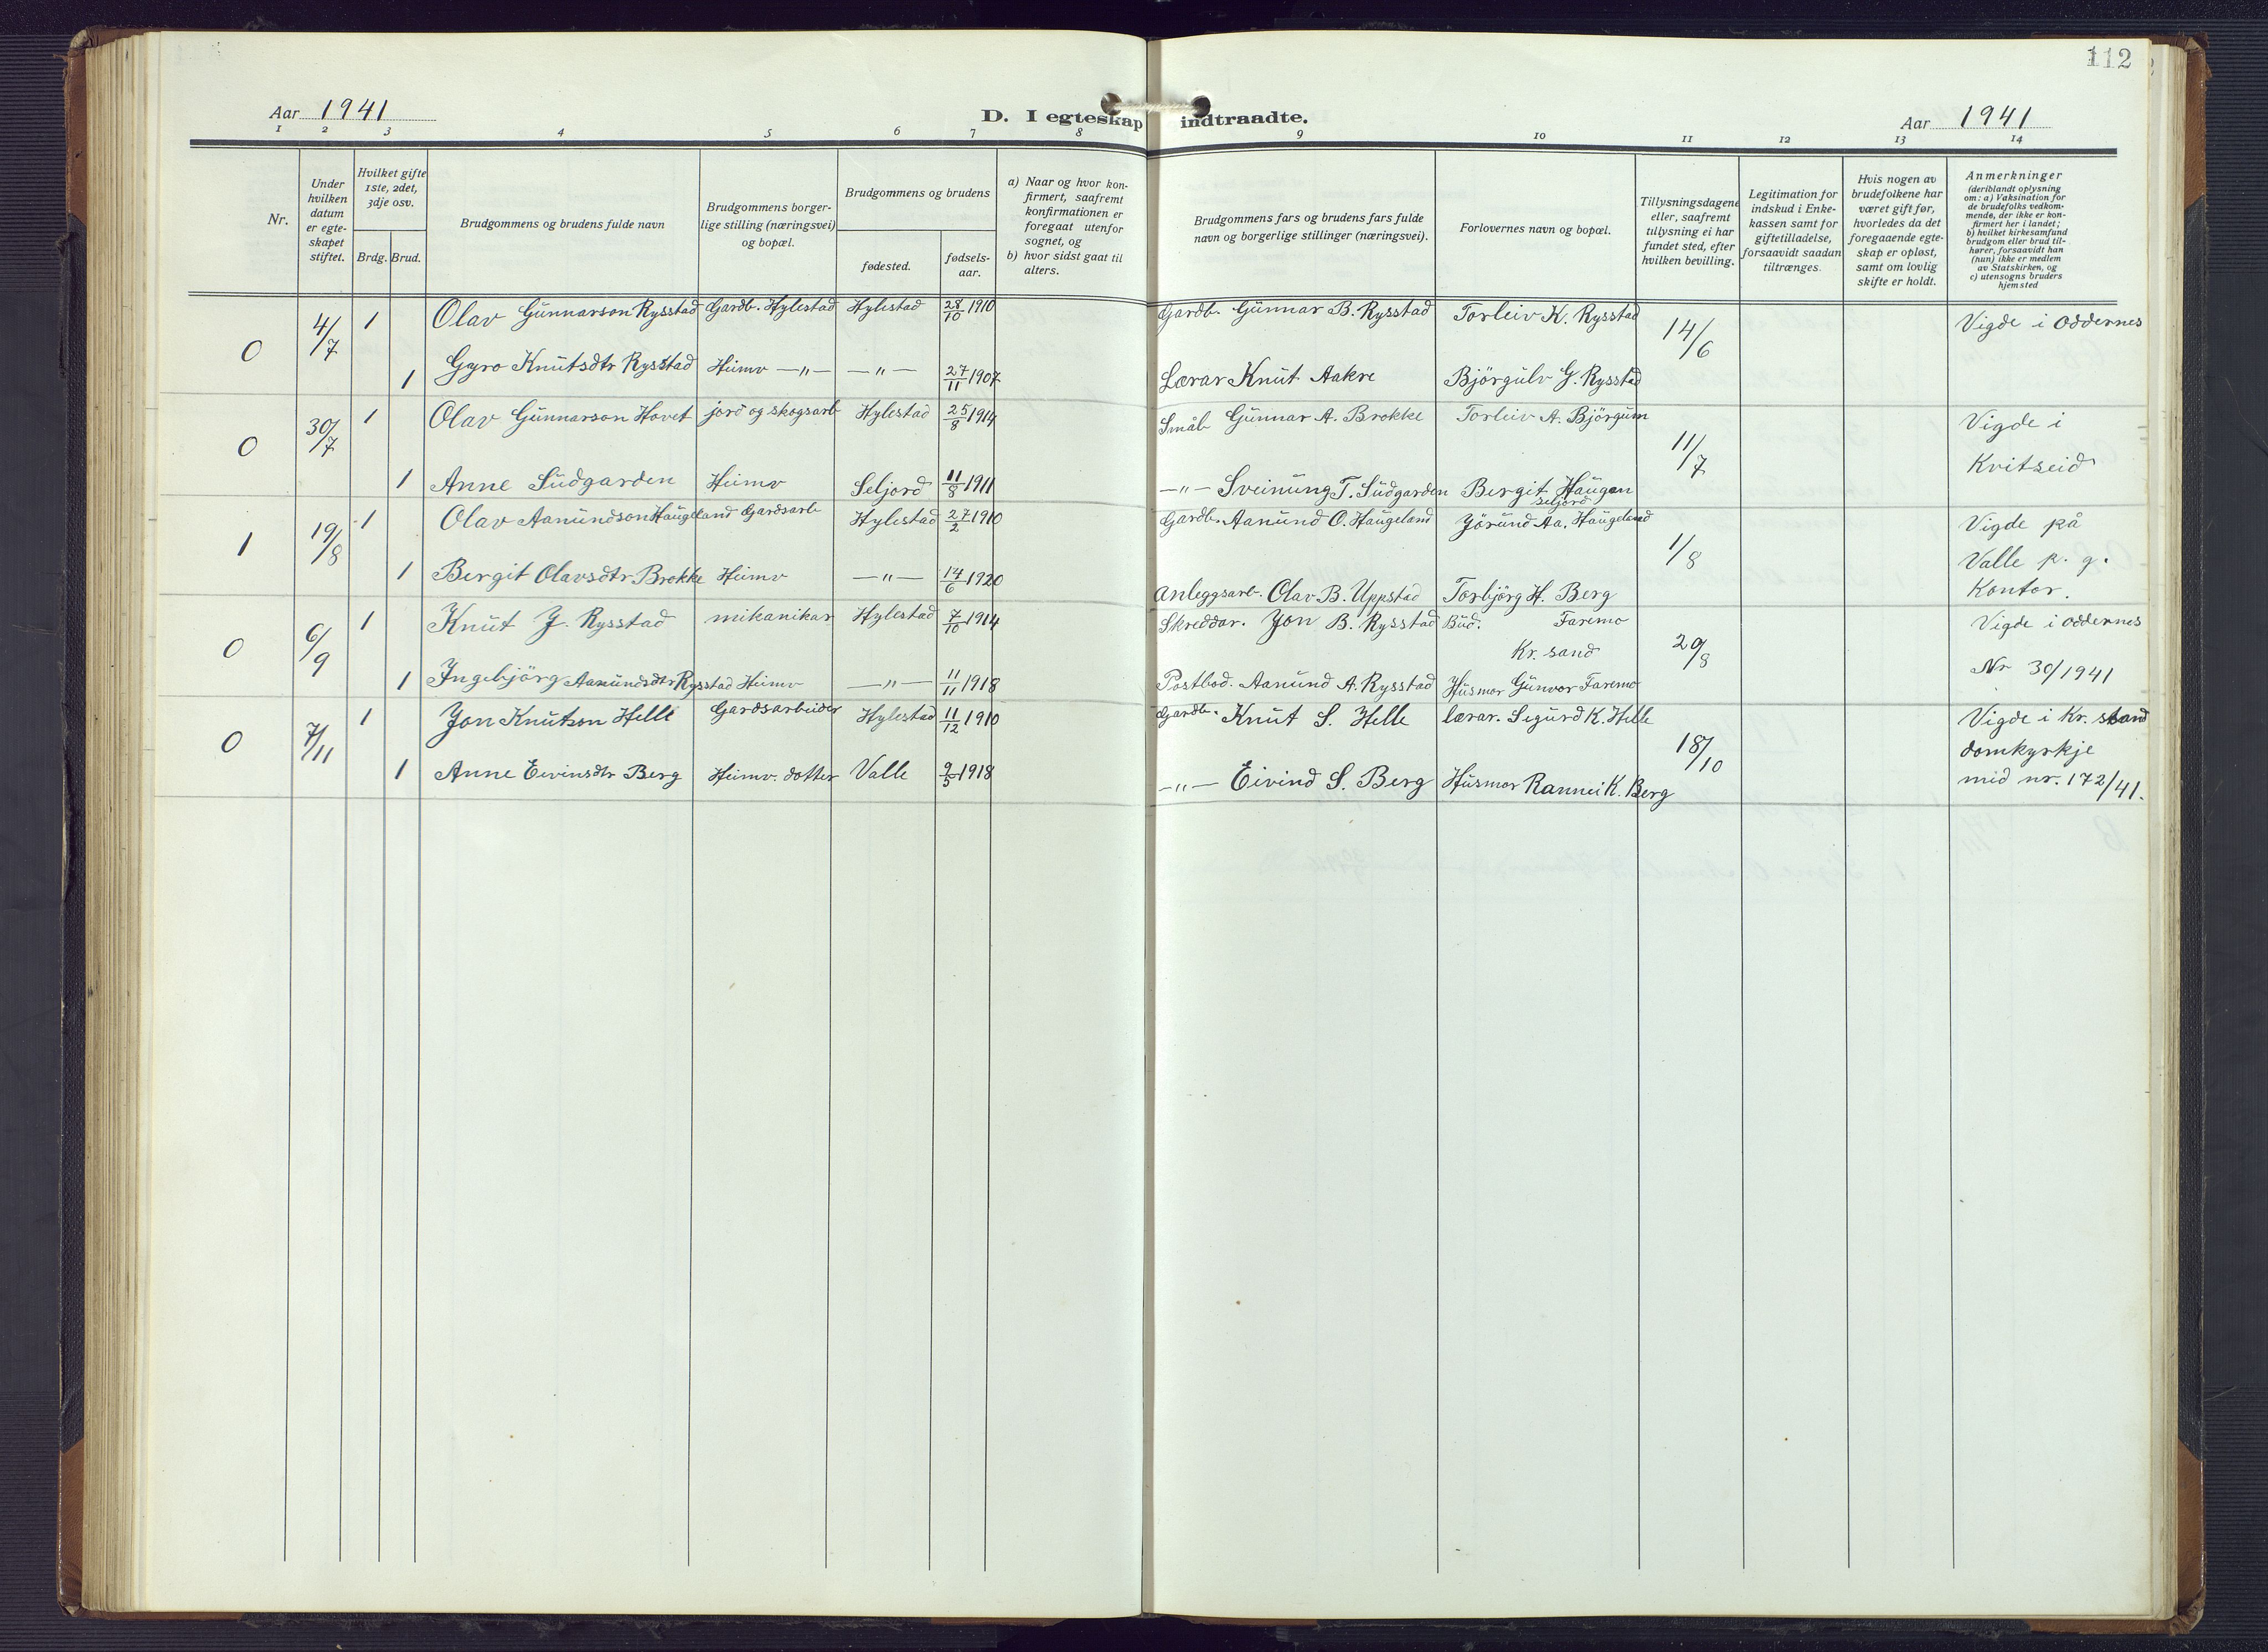 112
Aar 1941
D. I egteskap indtraadte.
Aar 1941
1 2 3 4 5 6 7 8 9 10 11 12 13 14
Nr.
Under
hvilken
datum
er egte-
skapet
stiftet.
Hvilket gifte
1ste, 2det,
3dje osv.
Brdg. Brud.
Brudgommens og brudens fulde navn
Brudgommens borger-
lige stilling (næringsvei)
og bopæl.
Brudgommens og brudens
fødested.
fødsels-
aar.
a) Naar og hvor kon-
firmert, saafremt
konfirmationen er
foregaat utenfor
sognet, og
b) hvor sidst gaat til
alters.
Brudgommens fars og brudens fars fulde
navn og borgerlige stillinger (næringsvei).
Forlovernes navn og bopæl.
Tillysningsdagene
eller, saafremt
tillysning ei har
fundet sted, efter
hvilken bevilling.
Legitimation for
indskud i Enke-
kassen samt for
giftetilladelse,
forsaavidt saadan
tiltrænges.
Hvis nogen av
brudefolkene har
været gift før,
hvorledes da det
foregaaende egte-
skap er opløst,
samt om lovlig
skifte er holdt.
Anmerkninger
(deriblandt oplysning
om: a) Vaksination for
de brudefolks vedkom-
mende, der ikke er kon-
firmert her i landet;
b) hvilket kirkesamfund
brudgom eller brud til-
hører, forsaavidt han
(hun) ikke er medlem
av Statskirken, og
c) utensogns bruders
hjemsted
0 4/7 1 Olav Gunnarson Rysstad Gardb. Hylestad Hylestad 28/10 1910 Gardb. Gunnar B. Rysstad Torleiv K. Rysstad 14/6 Vigde i Oddernes
1 Gyro Knutsdtr Rysstad Heimv —"— —"— 27/11 1907 Lærar Knut Aakre Björgulv G. Rysstad
0 30/7 1 Olav Gunnarson Hovet jord og skogsarb Hylestad 25/8 1914 Småb Gunnar A. Brokke Torleiv A. Björgum 11/7 Vigde i
Kvitseid
1 Anne Sudgarden Heimv Seljord 11/8 1911 —"— Sveinung T. Sudgarden Bergit Haugen
Seljord
1 19/8 1 Olav Aanundson Haugeland Gardsarb Hylestad 27/2 1910 Gardb. Aanund O. Haugeland Jörund Aa. Haugeland 1/8 Vigde på
Valle p. g.
Kontor.
1 Bergit Olavsdtr Brokke Heimv —"— 14/6 1920 Anleggsarb. Olav B. Uppstad Torbjörg H. Berg
0 6/9 1 Knut J. Rysstad mikanikar Hylestad 7/10 1914 Skreddar. Jon B. Rysstad Bud. Faremo
Kr. sand 29/8 Vigde i Oddernes
Nr 30/1941
1 Ingebjörg Aanundsdtr Rysstad Heimv —"— 11/11 1918 Postbod. Aanund A. Rysstad Husmor Gunvor Faremo
0 7/11 1 Jon Knutson Helle Gardsarbeider Hylestad 11/12 1910 Gardb. Knut S. Helle lærar. Sigurd K. Helle 18/10 Vigde i Kr. sand
domkyrkje
mid nr. 172/41.
1 Anne Eivinsdtr Berg Heimv. dotter Valle 9/5 1918 —"— Eivind S. Berg Husmor Rannei K. Berg